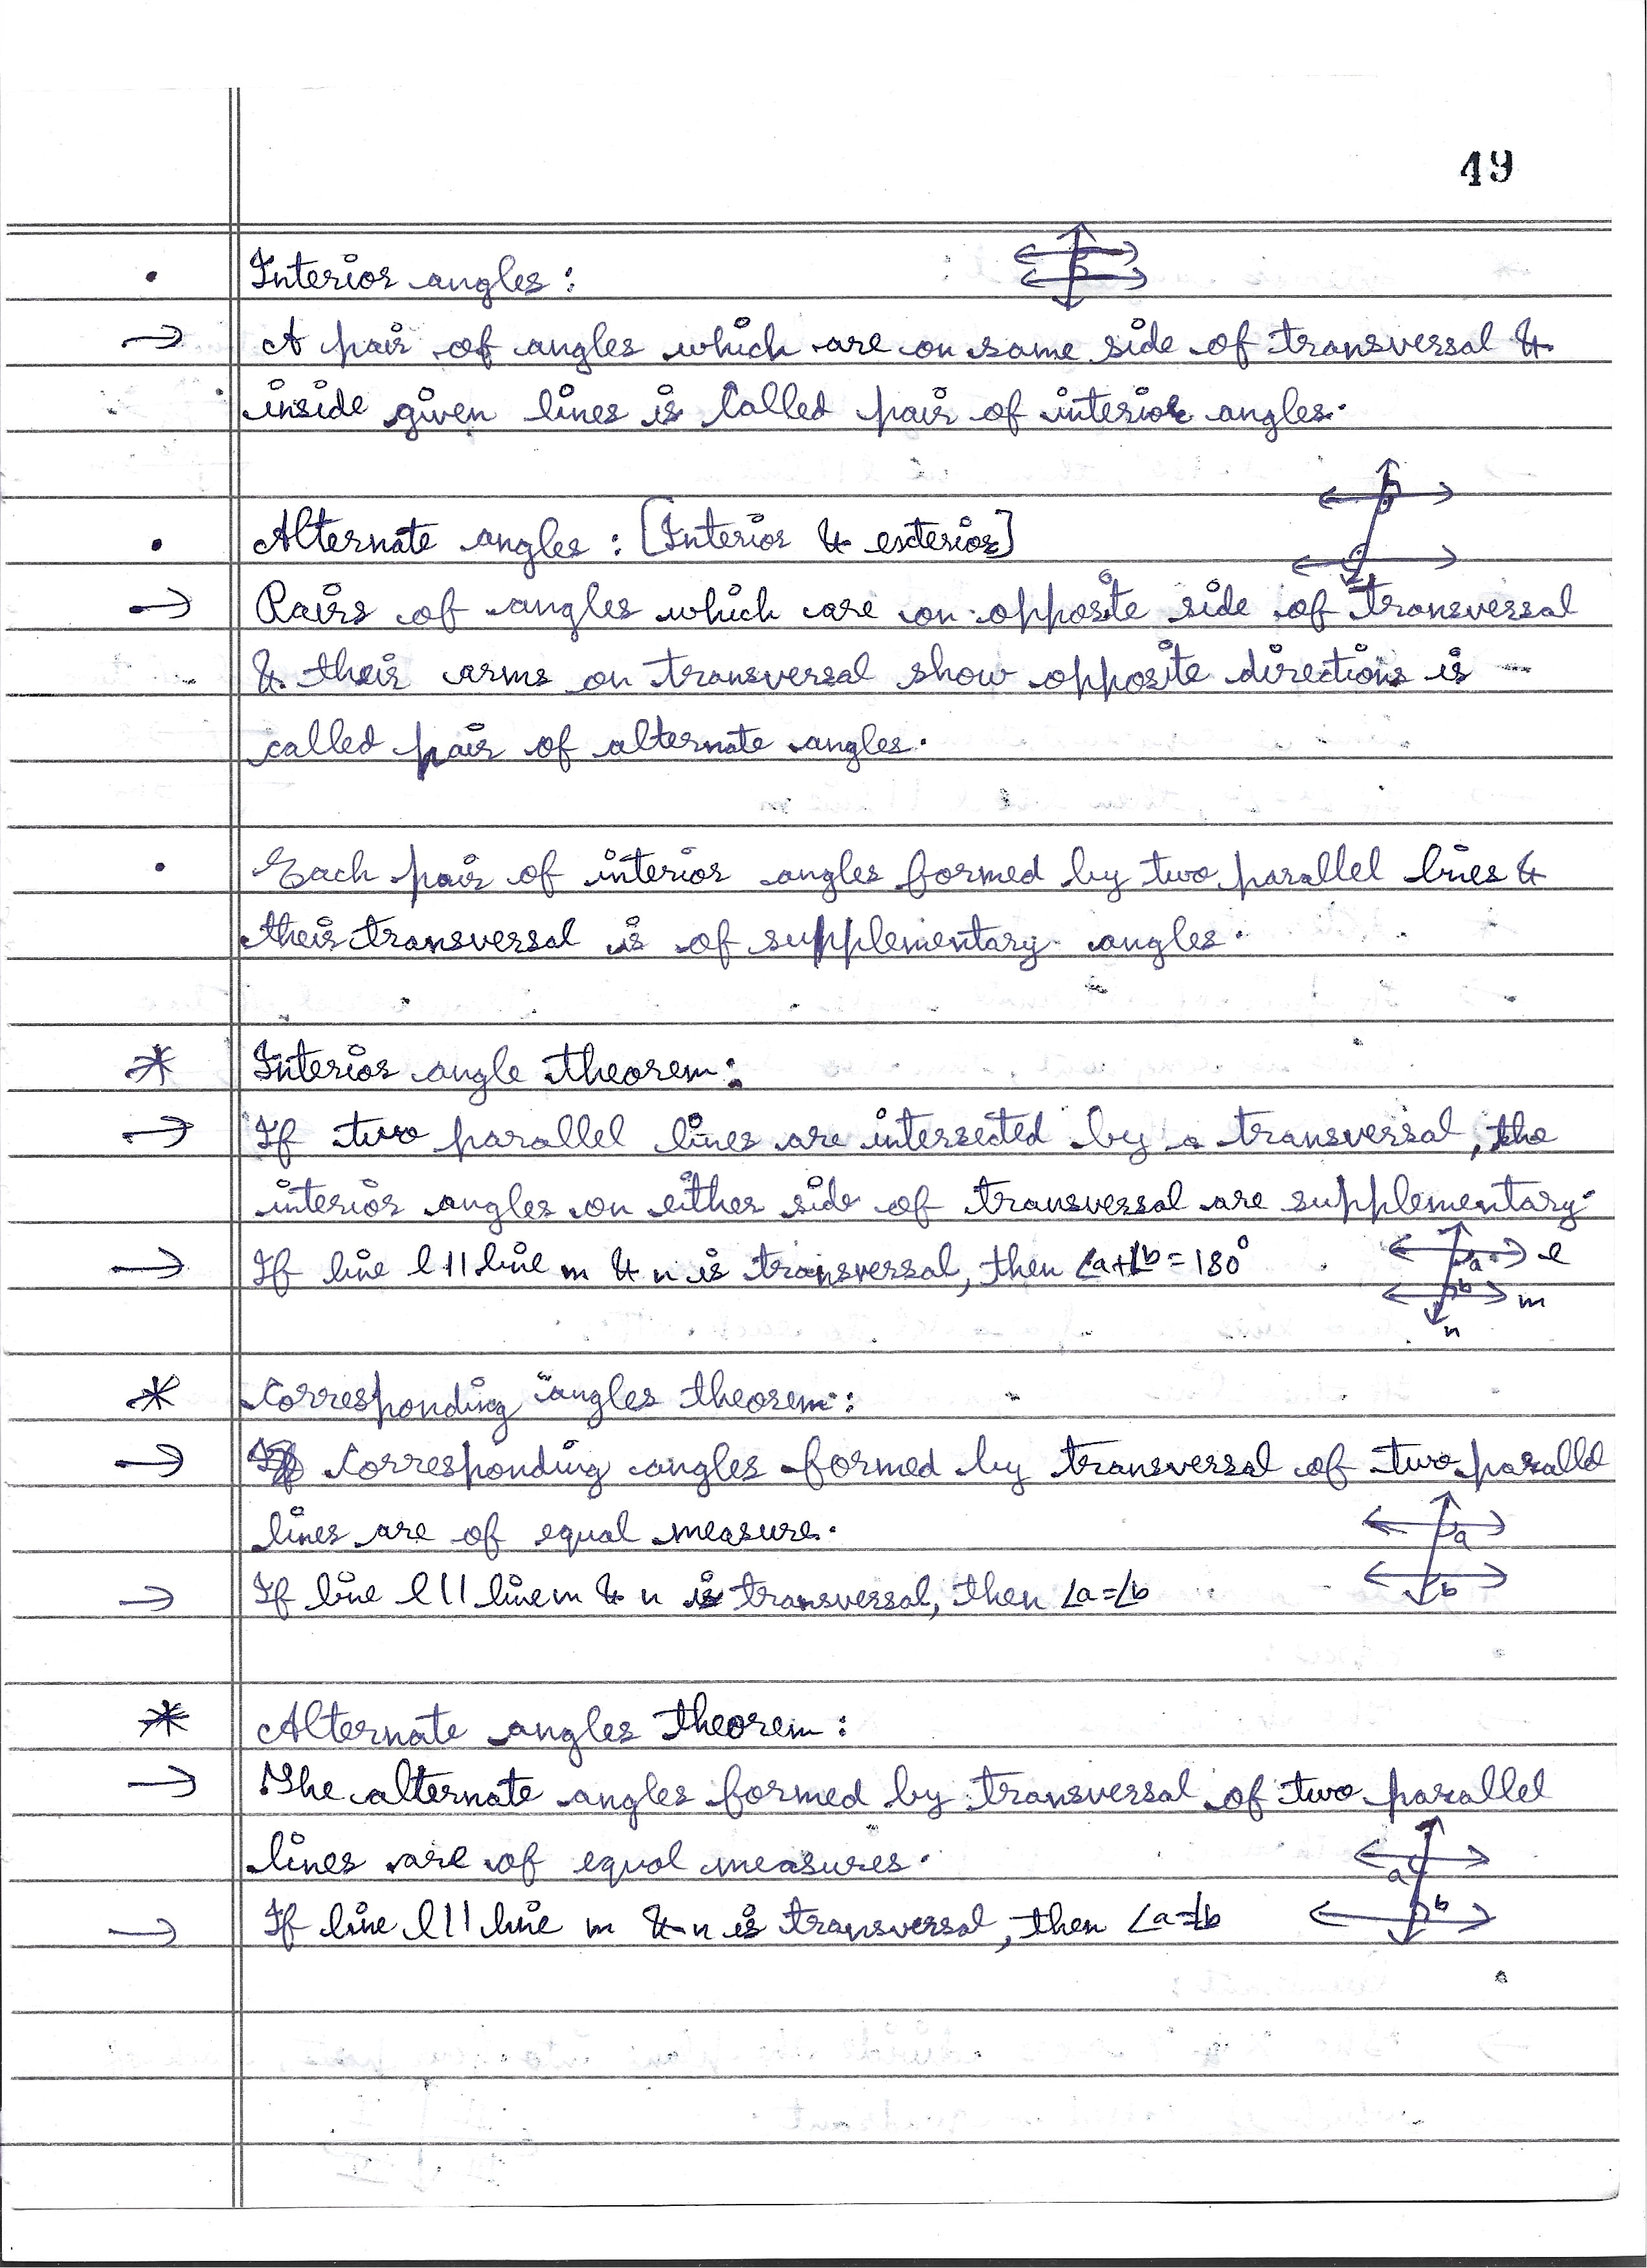 49
• Interior angles :
→ A pair of angles which are on same side of transversal &
inside given lines is called pair of interior angles.
• Alternate angles : [Interior & exterior]
→ Pairs of angles which are on opposite side of transversal
& their arms on transversal show opposite directions is
called pair of alternate angles.
• Each pair of interior angles formed by two parallel lines &
their transversal is of supplementary angles.
* Interior angle theorem :
→ If two parallel lines are intersected by a transversal, the
interior angles on either side of transversal are supplementary.
→ If line l || line m & n is transversal, then ∠a+∠b=180°
a l
b m
n
* Corresponding angles theorem :
→ Corresponding angles formed by transversal of two parallel
lines are of equal measure.
a
→ If line l || line m & n is transversal, then ∠a=∠b
b
* Alternate angles theorem :
→ The alternate angles formed by transversal of two parallel
lines are of equal measures.
a
→ If line l || line m & n is transversal, then ∠a=∠b
b